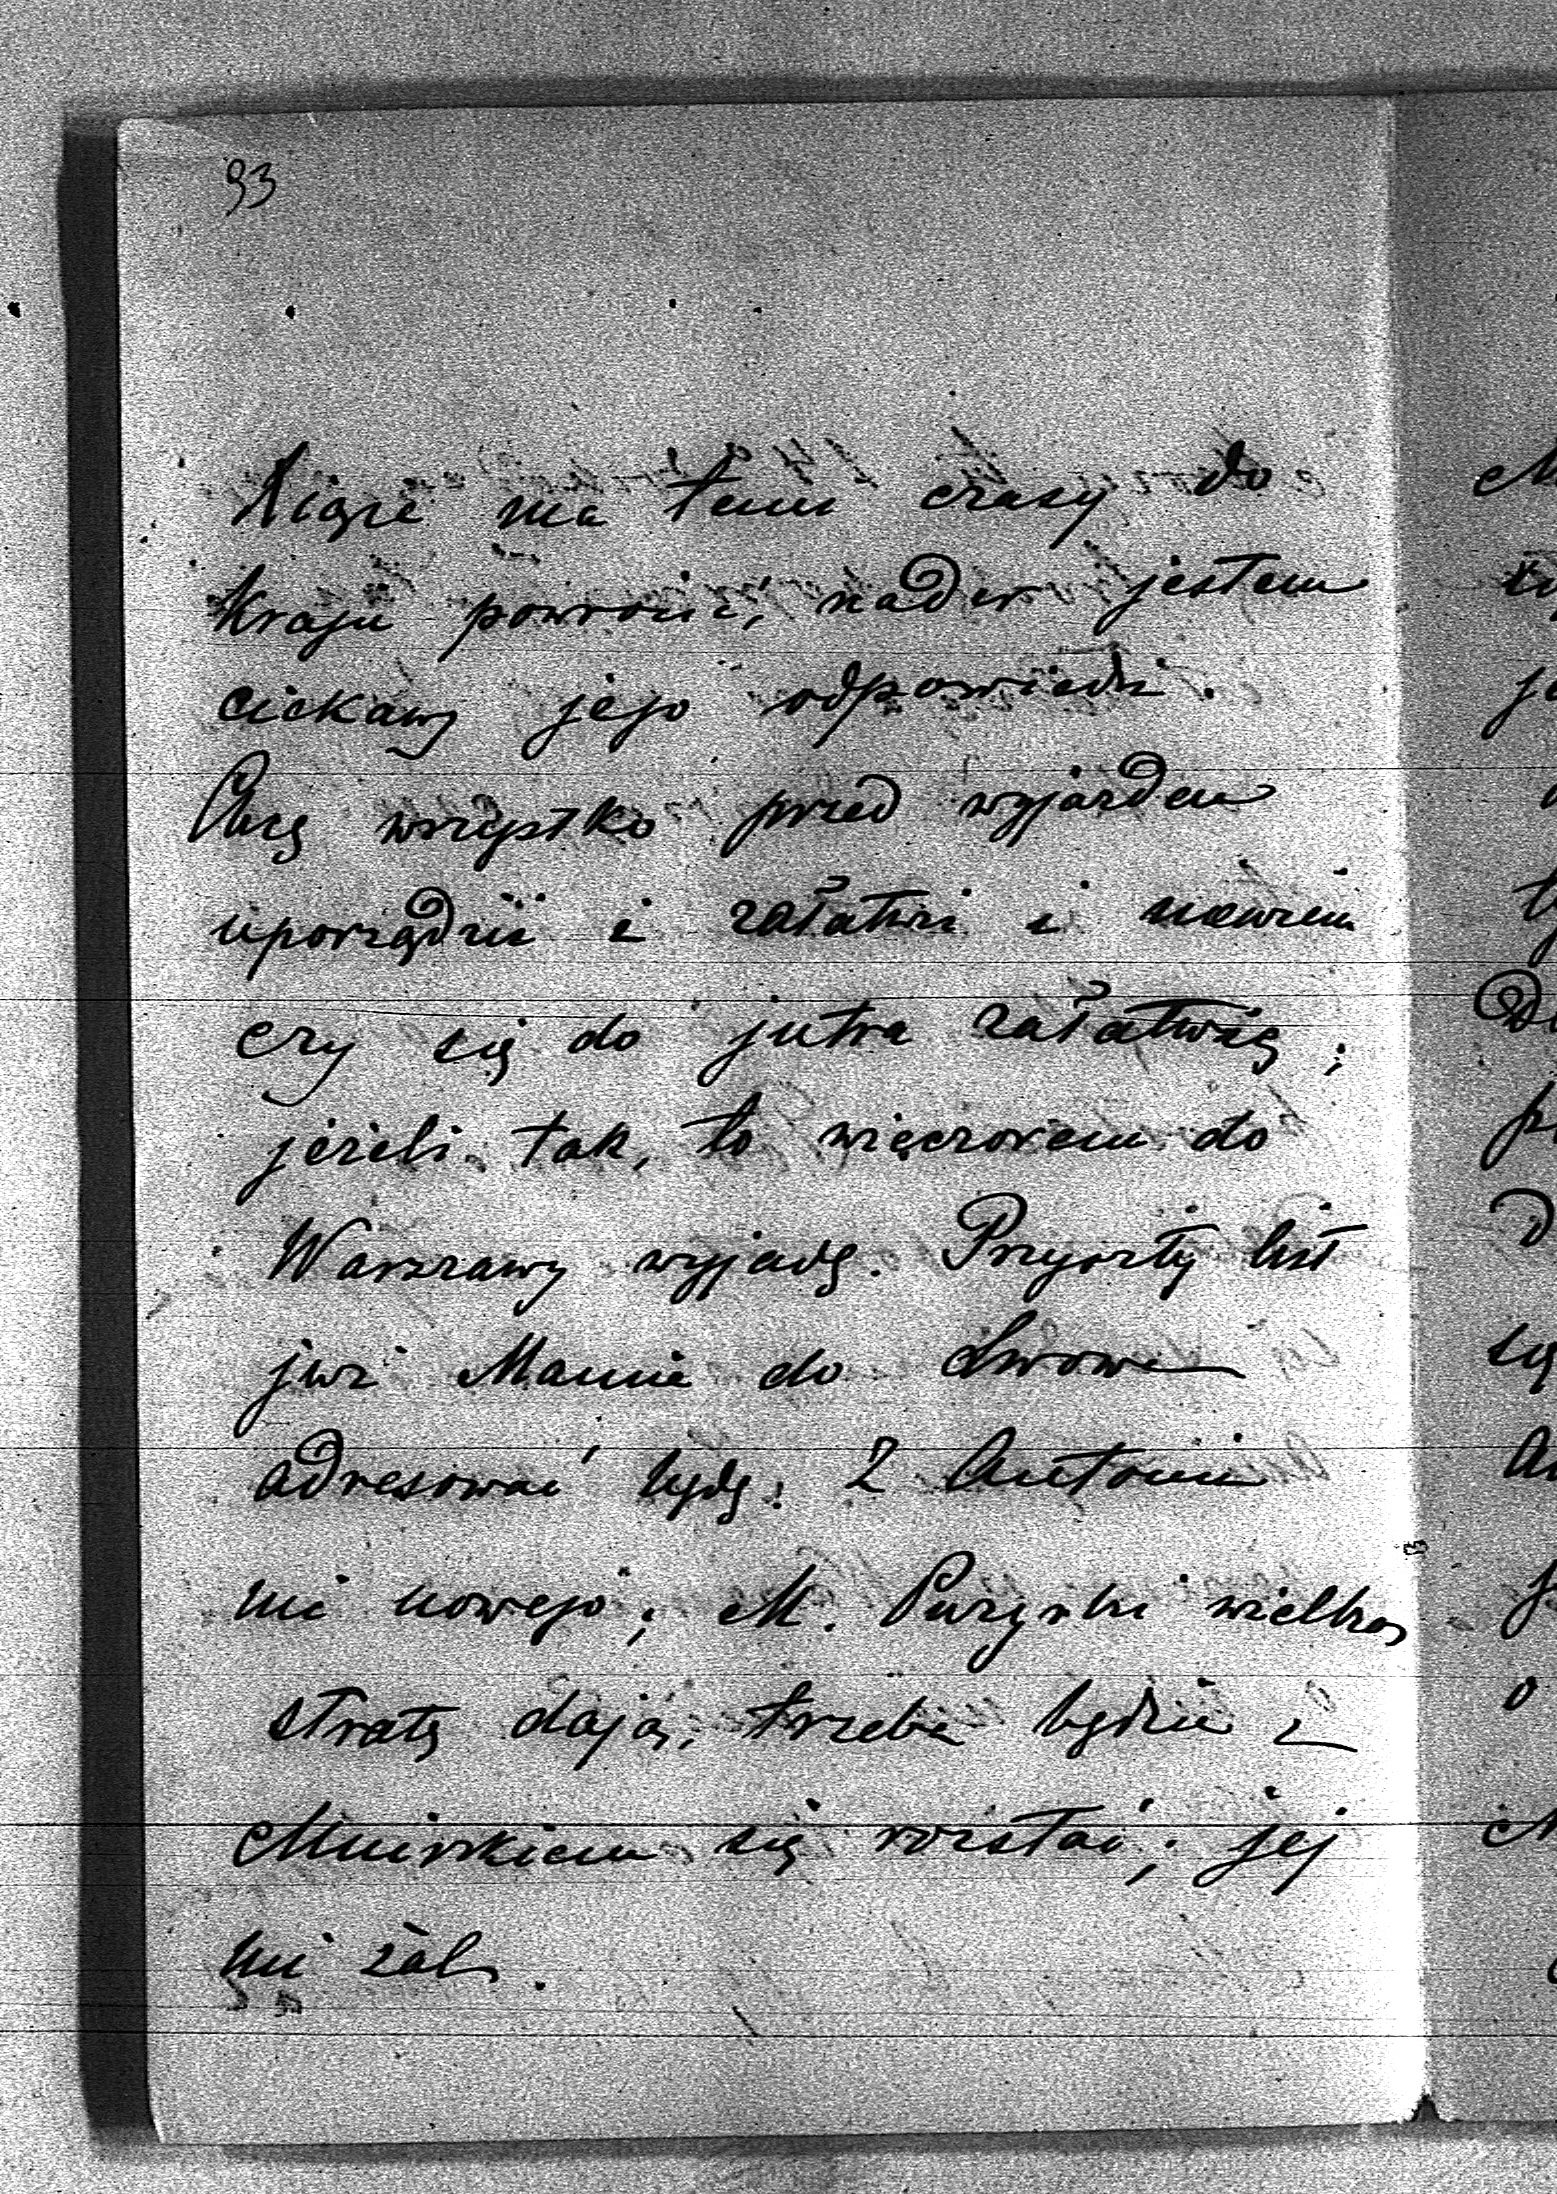 93
Książe ma temi czasy do
kraju powrócić, nader jestem
ciekawy jego odpowiedzi.
Chcę wszystko przed wyjazdem
uporządzić i załatwić i niewiem
czy się do jutra załatwię;
jeżeli tak, to wieczorem do
Warszawy wyjadę. Przyszły list
już Mamie do Lwowa
adresować będę. Z Antonin
nic nowego; M. Puzynki wielką
stratę dają; trzeba będzie z
się rozstać; jej
mi żal.